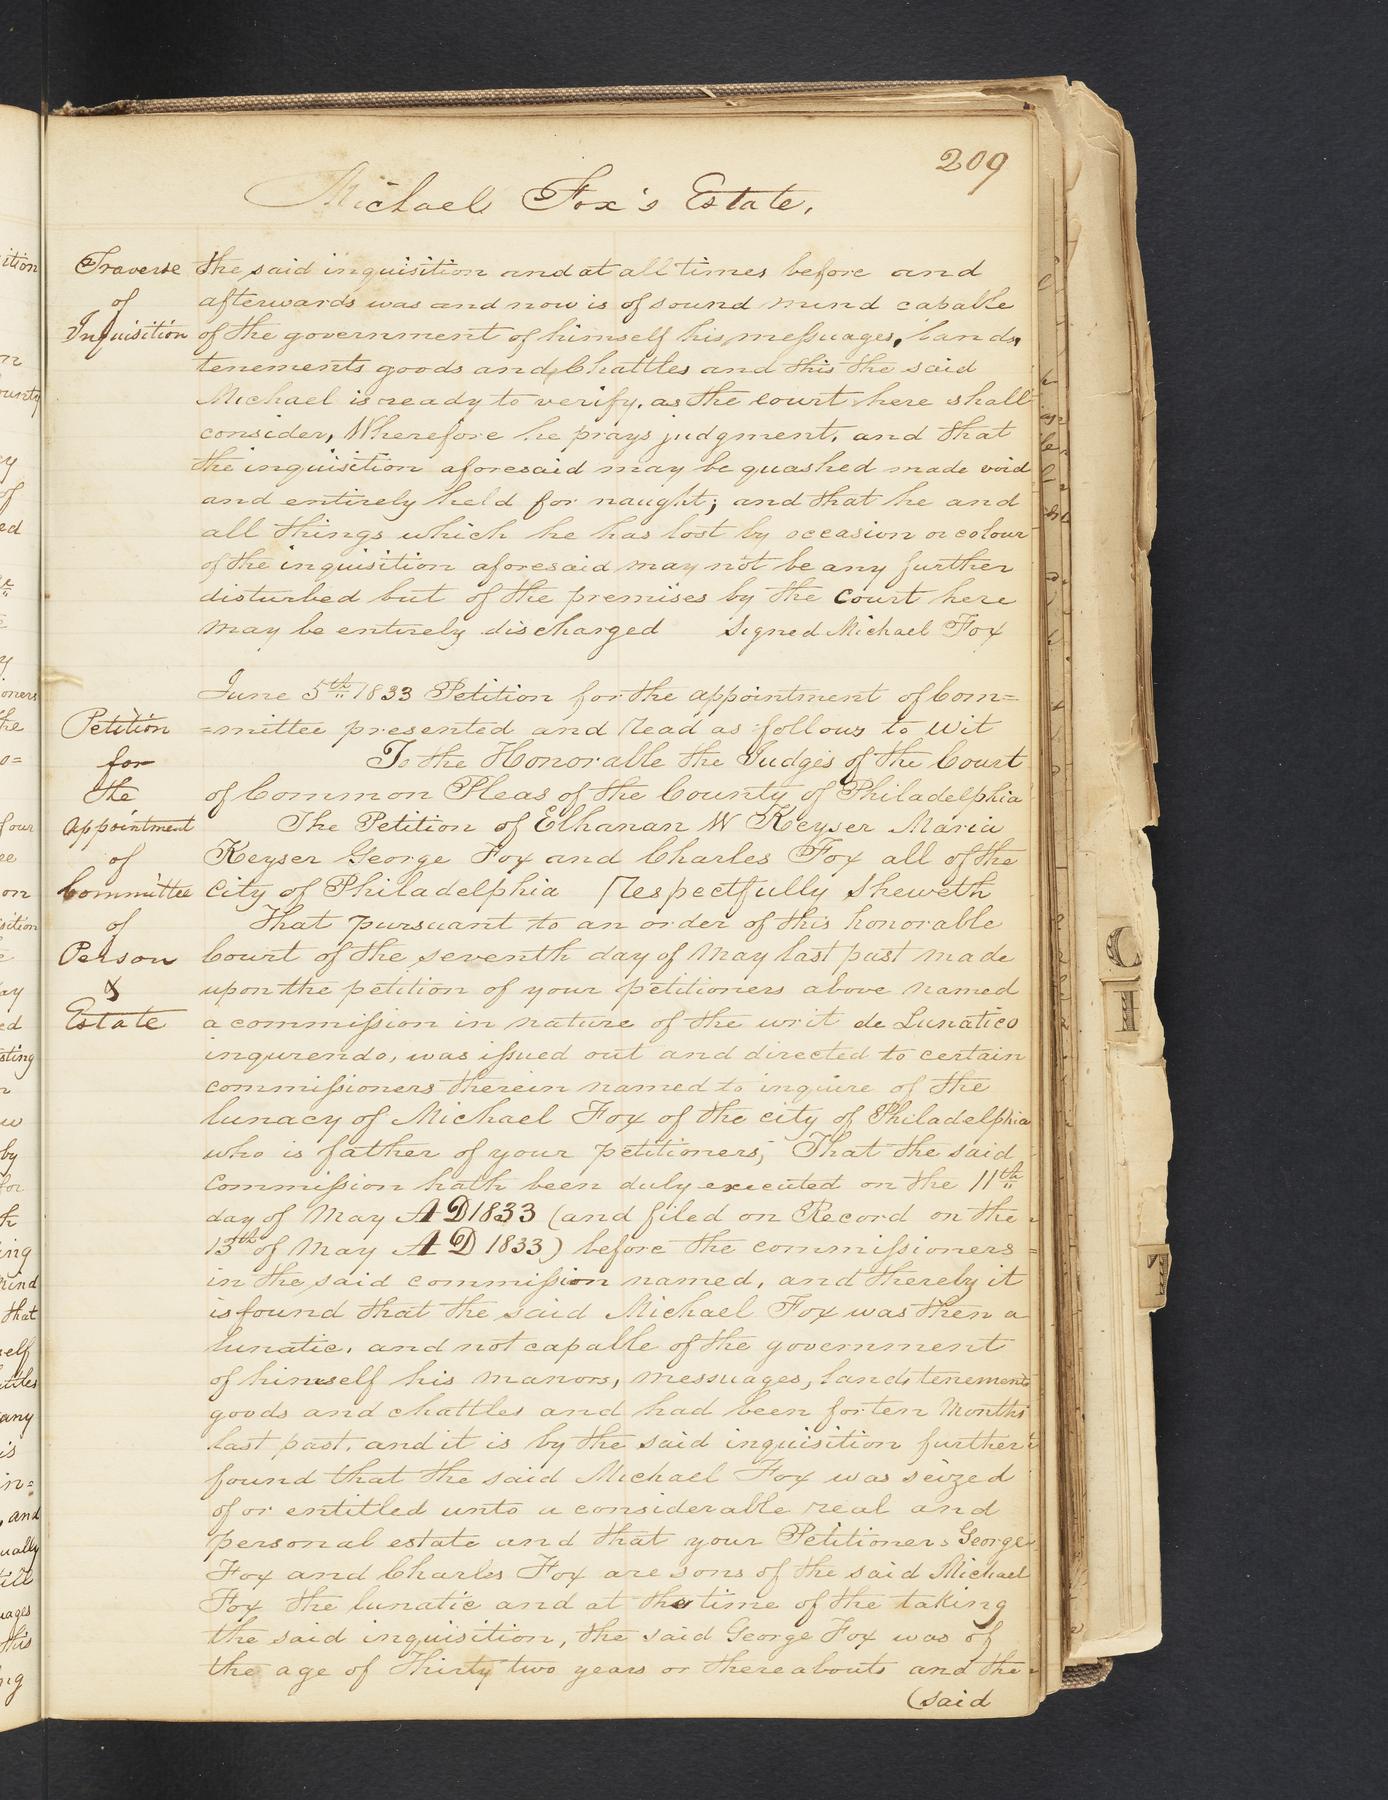 209
Michael Fox's Estate,
Traverse
of
Inquisition
the said inquisition and at all times before and
afterwards was and now is of sound mind capable
of the government of himself his messuages, lands,
tenements goods and Chattles and this the said
Michael is ready to verify, as the court here shall
consider, Wherefore he prays judgment, and that
the inquisition aforesaid may be quashed made void
and entirely held for naught; and that he and
all things which he has lost by occasion or colour
of the inquisition aforesaid may not be any further
disturbed but of the premises by the Court here
may be entirely discharged Signed Michael Fox
Petition
for
the
appointment
of
Committee
of
Person
&
Estate
June 5th 1833 Petition for the appointment of Com=
=mittee presented and read as follows to wit
To the Honorable the Judges of the Court
of Common Pleas of the County of Philadelphia
The Petition of Elhanan W Keyser Maria
Keyser George Fox and Charles Fox all of the
City of Philadelphia Respectfully Sheweth
That pursuant to an order of this honorable
Court of the seventh day of May last past made
upon the petition of your petitioners above named
a commission in nature of the writ de Lunatico
inqurendo, was issued out and directed to certain
commissioners therein named to inquire of the
lunacy of Michael Fox of the city of Philadelphia
who is father of your petitioners; That the said
Commission hath been duly executed on the 11th
day of May AD 1833 (and filed on Record on the
13th of May AD 1833) before the commissioners
in the said commission named, and thereby it
is found that the said Michael Fox was then a
lunatic, and not capable of the government
of himself his manors, messuages, lands tenements
goods and chattles and had been for ten Months
last past, and it is by the said inquisition further
found that the said Michael Fox was seized
of or entitled unto a considerable real and
personal estate and that your Petitioners George
Fox and Charles Fox are sons of the said Michael
Fox the lunatic and at the time of the taking
the said inquisition, the said George Fox was of
the age of Thirty two years or thereabouts and the
(said